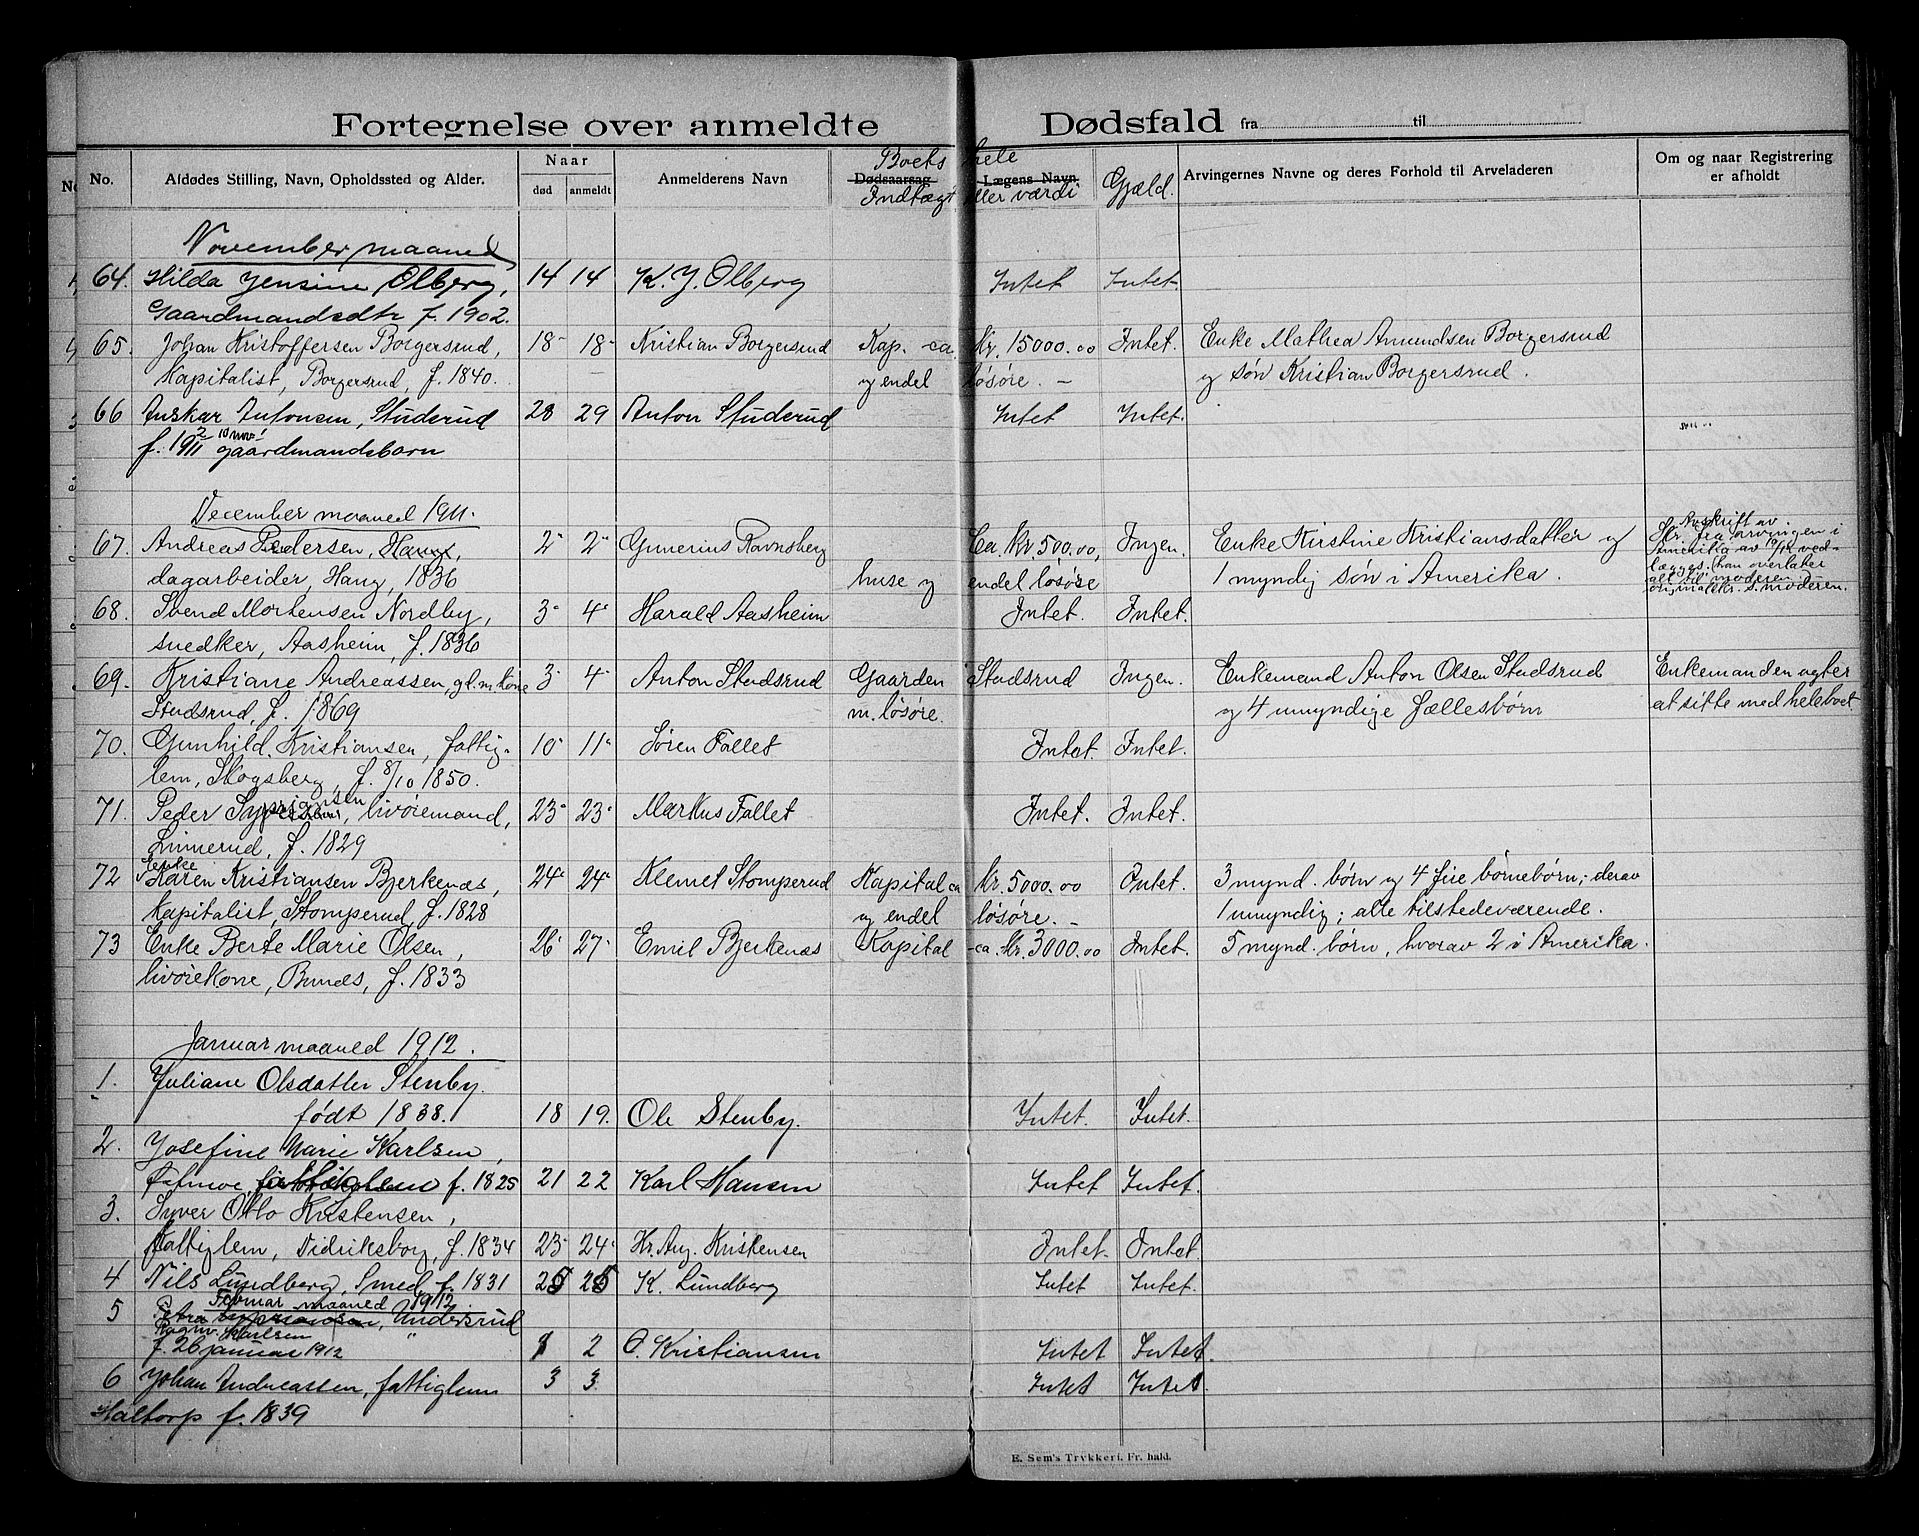 Fortegnelse over anmeldte Dødsfald fra til
No. Afdødes Stilling, Navn, Opholdssted og Alder. Naar død anmeldt Anmelderens Navn Dødsaarsag Lægens Navn Arvingernes Navne og deres Forhold til Arveladeren Om og naar Registrering er afholdt
Boets hele Indtægt eller værdi Gjæld.
November maaned
64. Hilda Jensine Olberg, 14 14 K. J. Olberg Intet Intet
Gaardmandsdtr f. 1902.
65. Johan Kristoffersen Borgersrud, 18 18 Kristian Borgersrud Kap. ca. Kr. 15000.00 Intet. Enke Mathea Amundsen Borgersrud
Kapitalist, Borgersrud, f. 1840. og endel løsøre. og søn Kristian Borgersrud.
66 Anskar Antonsen, Studerud 28 29 Anton Studerud Intet Intet.
f. 1911 gaardmandsbarn
December maaned 1911.
67. Andreas Pedersen, 2 2 Gunerius Ravnsberg Ca. Kr 500.00, Ingen. Enke Kirstine Kristiansdatter og Avskrift av
Skr. fra arvingen i
dagarbeider, Haug, 1836 huse og endel løsøre 1 myndig søn i Amerika. Amerika av 10/12 ved-
lægges. (han overlater
alt til moderen.)
68. Svend Mortensen Nordby, 3 4 Harald Aasheim Intet. Intet. originalkr. s. moderen.
snedker, Aasheim, f. 1836
69. Kristiane Andreassen, gl. m. kone 3 4 Anton Stadsrud Gaarden Stadsrud Ingen. Enkemand Anton Olsen Stadsrud Enkemanden agter
Stadsrud, f. 1869 m. løsøre. og 4 umyndige fællesbørn at sitte med hele boet
70. Gunhild Kristiansen, fattig- 10 11 Søren Fallet Intet. Intet.
lem, Skogsberg, f. 8/10 1850.
71. Peder Syversen, livøremand, 23 23 Markus Fallet Intet. Intet.
Linnerud, f. 1829
72 Enke Karen Kristiansen Bjerkenæs, 24 24 Klemet Stomperud Kapital ca Kr. 5000.00 Intet. 3 mynd. børn og 4 fire børnebørn; derav
Kapitalist, Stomperud, f. 1828 og endel løsøre. 1 umyndig; alle tilstedeværende.
73 Enke Berte Marie Olsen, 26 27 Emil Bjerkenæs Kapital ca. Kr. 3000.00 Intet. 5 mynd. børn, hvorav 2 i Amerika.
livørekone, Bunds, f. 1833
Januar maaned 1912.
1. Juliane Olsdatter Stenby.
født 1838. 18 19. Ole Stenby. Intet. Intet.
2. Josefine Marie Karlsen,
f. 1825 21 22 Karl Hansen Intet Intet.
3. Syver Otto Kristensen,
Fattiglem, Vidriksborg, f. 1834 23 24 Kr. Aug. Kristensen Intet. Intet
4 Nils Lundberg, Smed, f. 1831 25 26 K. Lundberg Intet Intet.
Februar maaned 1912
5 Petra Undersrud
Ragnv. Karlsen
f. 26 januar 1912 1 2 O. Kristiansen Intet Intet.
6 Johan Andreassen, fattiglem 3 3 Intet Intet.
Haltorp f. 1839
E. Sem's Trykkeri, Fr. hald.